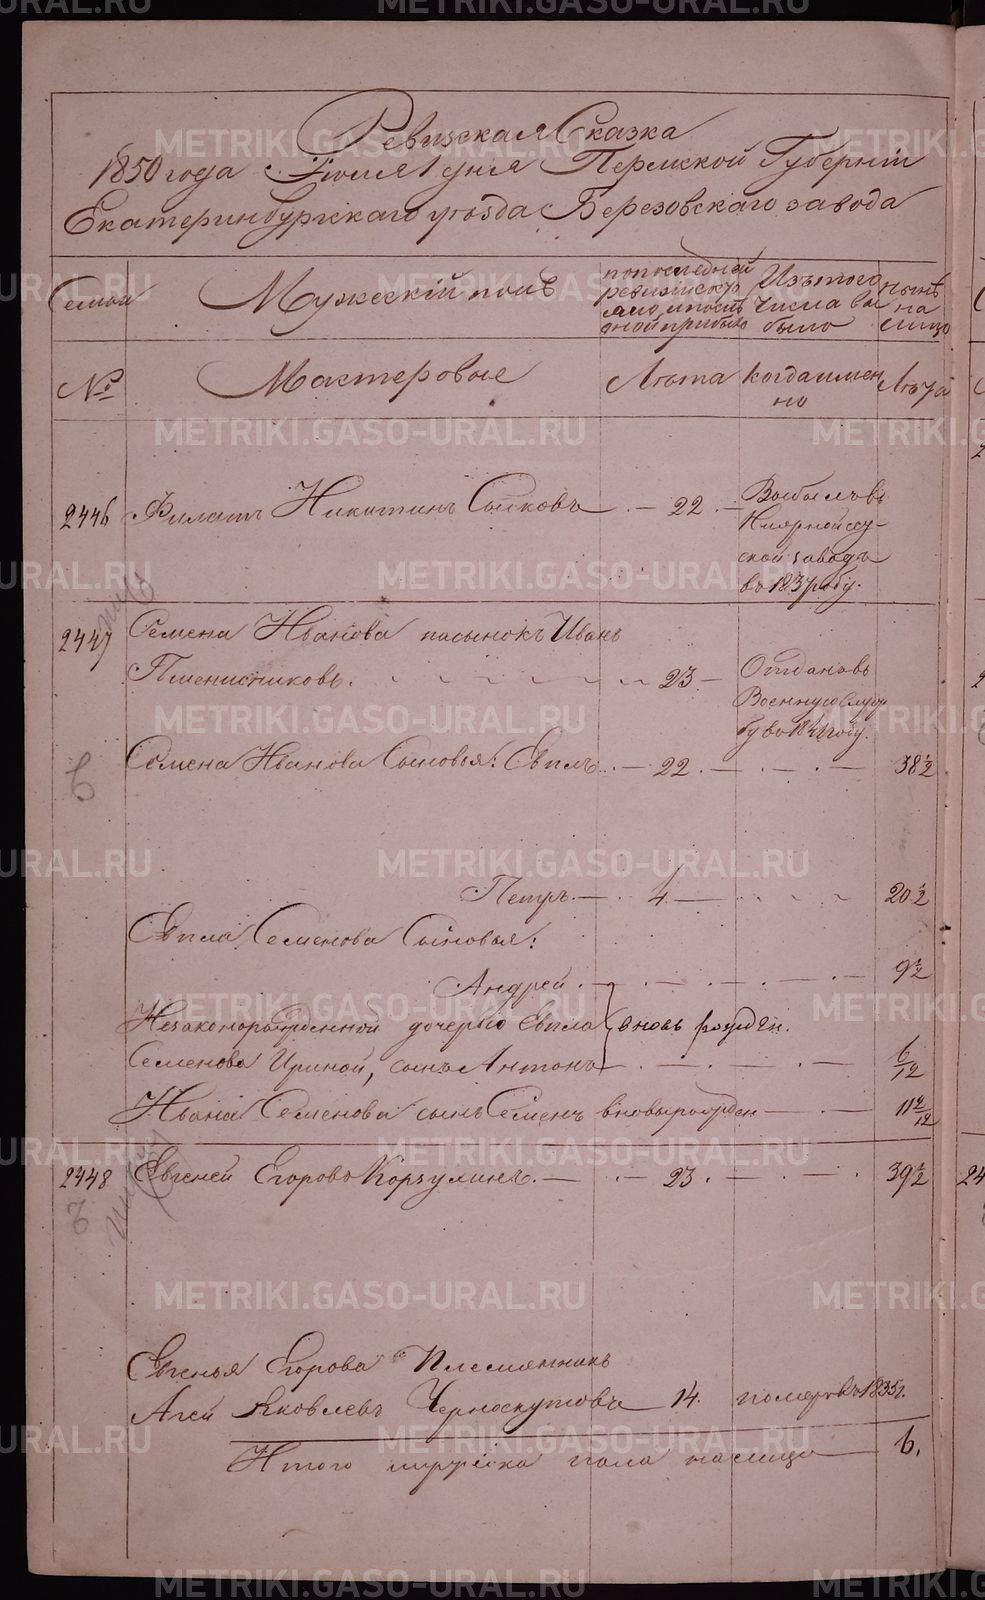 Ревизская Сказка
1850 года Июля 1 дня Пермской Губернiи
Екатеринбургскаго уѣзда Березовскаго завода
Семьи
Мужескiй полъ
по последней
ревизiи
Изъ того
числа вы
было
Нынѣ
на
лицо
№
Мастеровые
Лѣта
когда имен
но
Лѣта
2446 Филатъ Никитинъ Сыковъ — 22 —
Выбылъ въ
ской заводъ
въ 1837 году.
2447 Семена Иванова пасынокъ Иванъ
Пшенисниковъ. 23 —
Отданъ въ
Военную служ
бу въ 1841 году.
Семена Иванова Сыновья: Евплъ — 22. — 38 ½
Петръ — 4 — 20 ½
Евпла Семенова Сыновья:
Андрей. 9 ½
Незаконорожденной дочерью Евпла вновь рожден.
Семенова Ириной, сынъ Антонъ — 6/12
Ивана Семенова сынъ Семенъ вновь рожден — 11 2/12
2448 Евгеней Егоровъ Корзулинъ. — 23. — 39 ½
Евгенья Егорова Племянникъ
Агей Яковлевъ Черноскутовъ — 14. померъ въ 1835 г.
Итого мужеска пола на лицо — 6.
METRIKI.GASO-URAL.RU